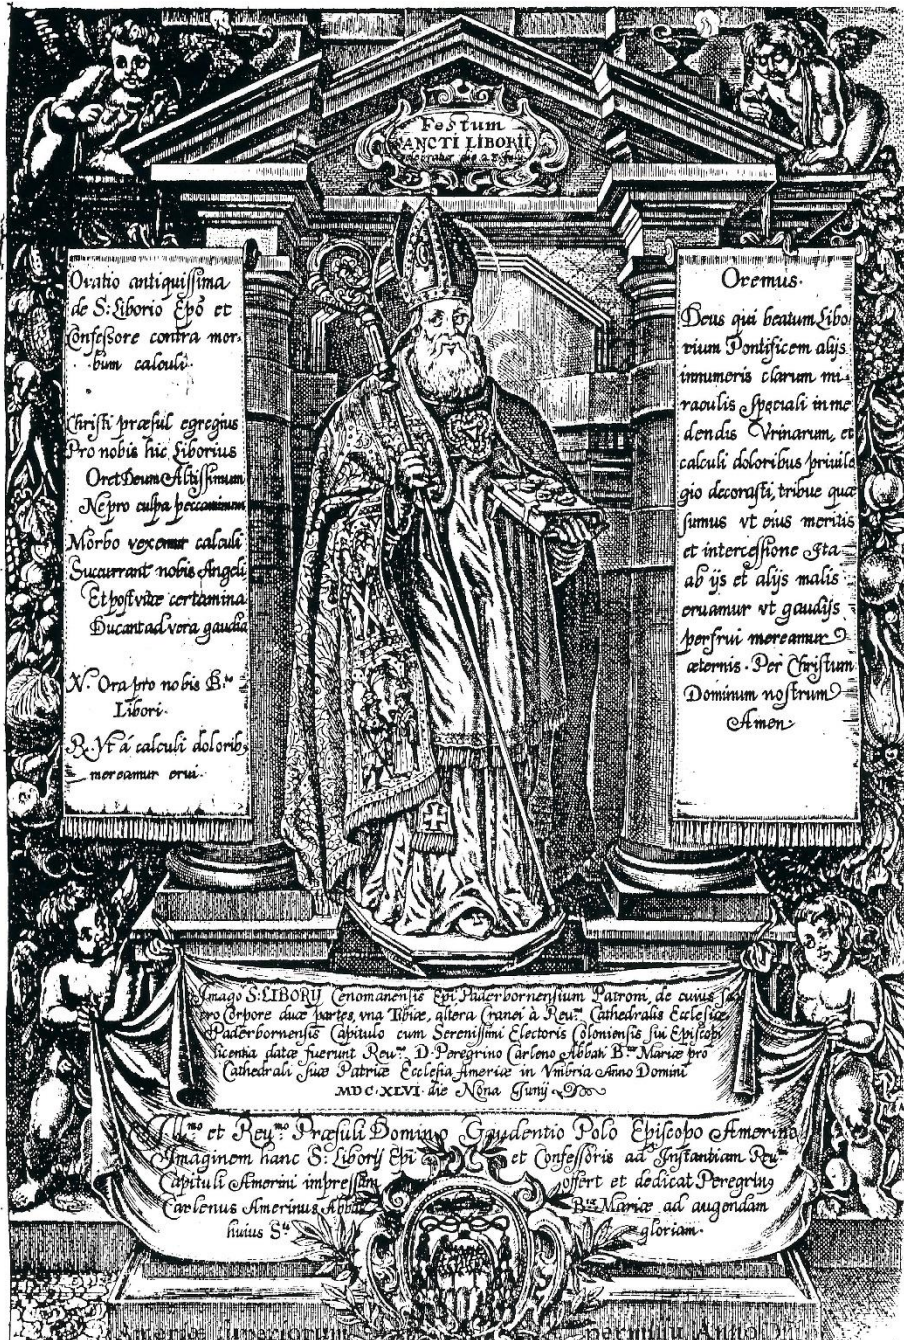 Festum
SANCTI LIBORII
Oratio antiquissima
de S: Liborio Epõ et
Confessore contra mor-
bum calculi.
Christi præsul egregius
Pro nobis hic Liborius
Oret Deum Altissimum
Ne pro culpa peccaminum
Morbo vexemur calculi
Succurrant nobis Angeli
Et post vitæ certamina
Ducant ad vera gaudia
V. Ora pro nobis B.te
Libori.
R. Vt à calculi dolorib,
mereamur erui.
Oremus.
Deus qui beatum Libo
rium Pontificem alijs
innumeris clarum mi-
raculis speciali in me
dendis Vrinarum, et
calculi doloribus priuile
gio decorasti, tribue quæ
sumus vt eius meritis
et intercessione Ita
ab ijs et alijs malis
eruamur vt gaudijs
perfrui mereamur
æternis. Per Christum
Dominum nostrum
Amen
Imago S: LIBORIJ Cenomanensis Epi Paderbornensium Patroni, de cuius Sa
cro Corpore duæ partes, vna Tibiæ, altera Cranei à Reu.mo Cathedralis Ecclesiæ
Paderbornensis Capitulo cum Serenissimi Electoris Coloniensis sui Episcopi
licentia datæ fuerunt Reu.mo D. Peregrino Carleno Abbati B.tæ Mariæ pro
Cathedrali suæ Patriæ Ecclesia Ameriæ in Vmbria Anno Domini
MDC.XLVI. die Nona Junij
Ill.mo et Reu.mo Præsuli Domino Gaudentio Polo Episcopo Amerino
Imaginem hanc S: Liborij Epi et Confessoris ad Instantiam Reu.mi
Capituli Amerini impressam offert et dedicat Peregrin,
Carlenus Amerinus Abbas B.tæ Mariæ ad augendam
huius S.ti gloriam.